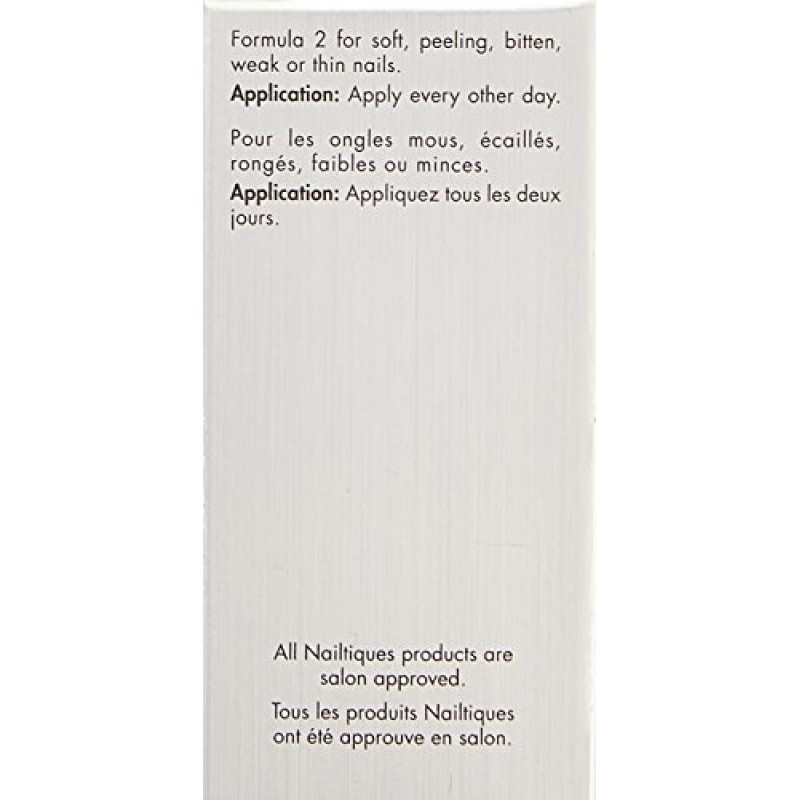 Formula 2 for soft, peeling, bitten,
weak or thin nails.
Application: Apply every other day.
Pour les ongles mous, écaillés,
rongés, faibles ou minces.
Application: Appliquez tous les deux
jours.
All Nailtiques products are
salon approved.
Tous les produits Nailtiques
ont été approuve en salon.